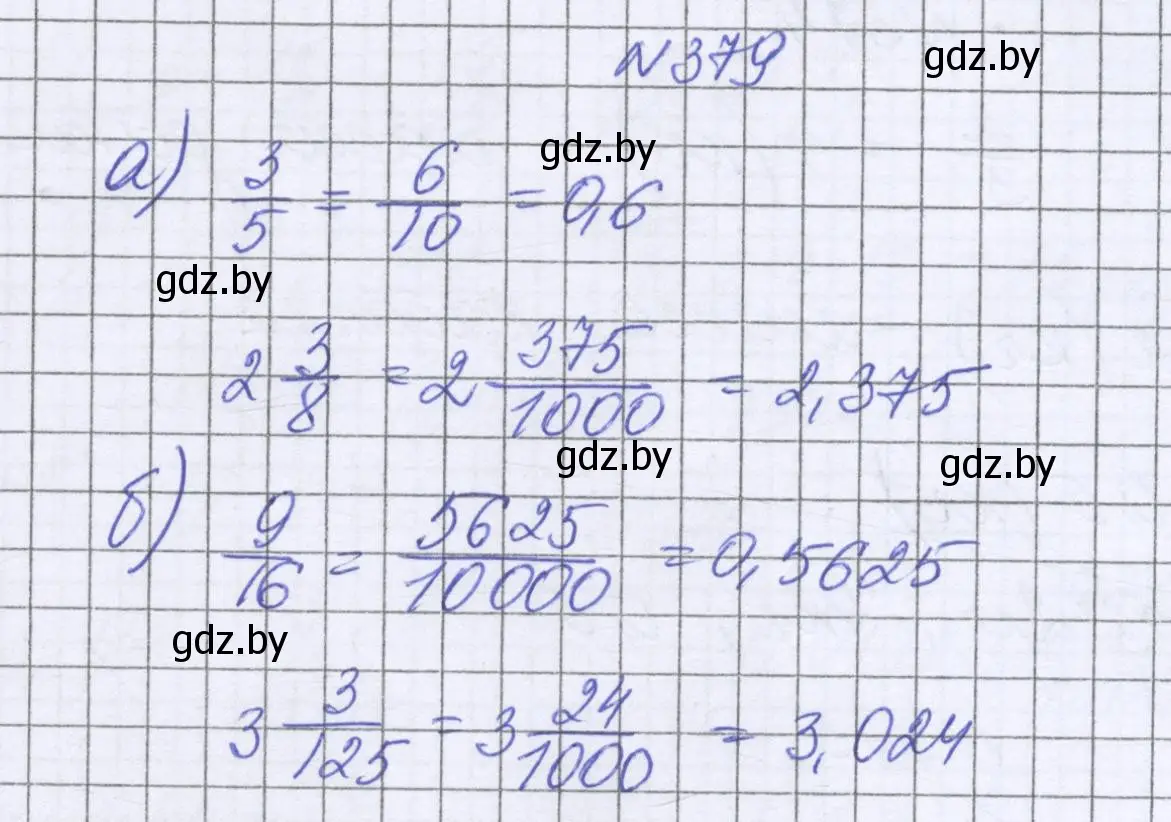 №379 gdz.by
а) 3/5 = 6/10 = 0,6 gdz.by
gdz.by
2 3/8 = 2 375/1000 = 2,375
gdz.by gdz.by
б) 9/16 = 5625/10000 = 0,5625
gdz.by
3 3/125 = 3 24/1000 = 3,024